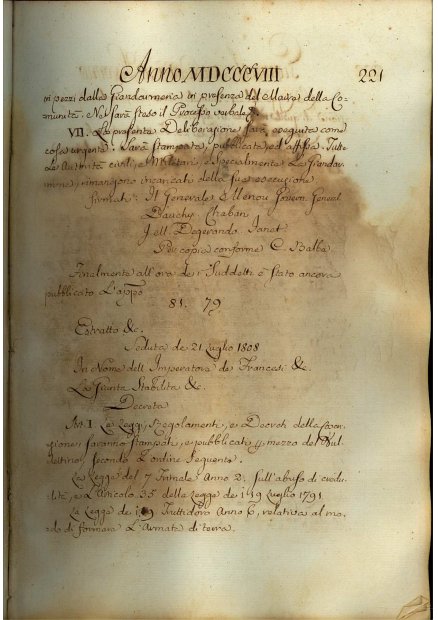 Anno MDCCCVIII 221
in pezzi dalla Giandarmeria in presenza del Maire della Co-
munità. Ne sarà steso il Processo verbale.
VII. La presente Deliberazione sarà eseguita come
cosa urgente. Sarà stampata, pubblicata, ed affissa. Tut-
te le Autorità civili, e Militari, e specialmente la Giandar-
meria, rimangono incaricati della sua esecuzione.
firmati: Il Generale Menou Govern. General
Dauchy Chaban
Jell Degerando. Janet
Per copia conforme C. Balba
Finalmente all'ora de i Suddetti è stato ancora
pubblicato l'app.o
81. 79
Estratto &c.
Seduta de 21 Luglio 1808
In Nome dell Imperatore de Francesi &c.
La Giunta Stabilita &c.
Decreta
Art. I Le Leggi, Regolamenti, e Decreti della
saranno stampati, e pubblicati mezzo del Bul-
lettino, secondo l'ordine seguente.
La Legge del 7 Frimale Anno 2. sull'abuso di credu-
lità, e l'Articolo 35 della Legge de i 19 Luglio 1791.
La Legge de i 19 Fruttidoro Anno 6, relativa al mo-
do di formare l'Armata di terra.